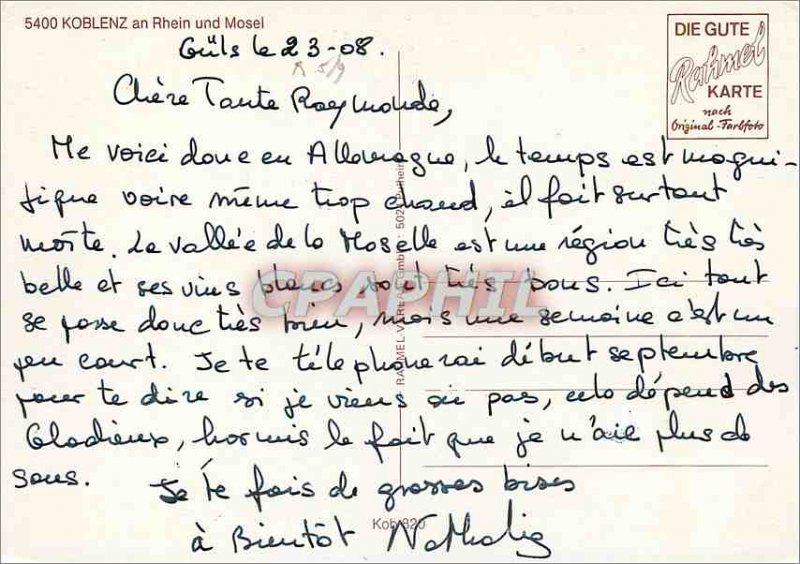 5400 KOBLENZ an Rhein und Mosel
DIE GUTE
Rahmel
KARTE
nach
Original-Farbfoto
Güls le 23-08.
Chère Tante Raymonde,
Me voici donc en Allemagne, le temps est magni-
fique voire même trop chaud, il fait surtout
moite. La vallée de la Moselle est une région très très
belle et ses vins blancs sont très bons. Ici tout
se passe donc très bien, mais une semaine c'est un
peu court. Je te téléphonerai début septembre
pour te dire si je viens ou pas, cela dépend des
Gladieux, hormis le fait que je n'aie plus de
sous.
Je te fais de grosses bises
à Bientôt Nathalie
Kob 820
RAHMEL-VERLAG GmbH · 502 Pulheim
CPAPHIL